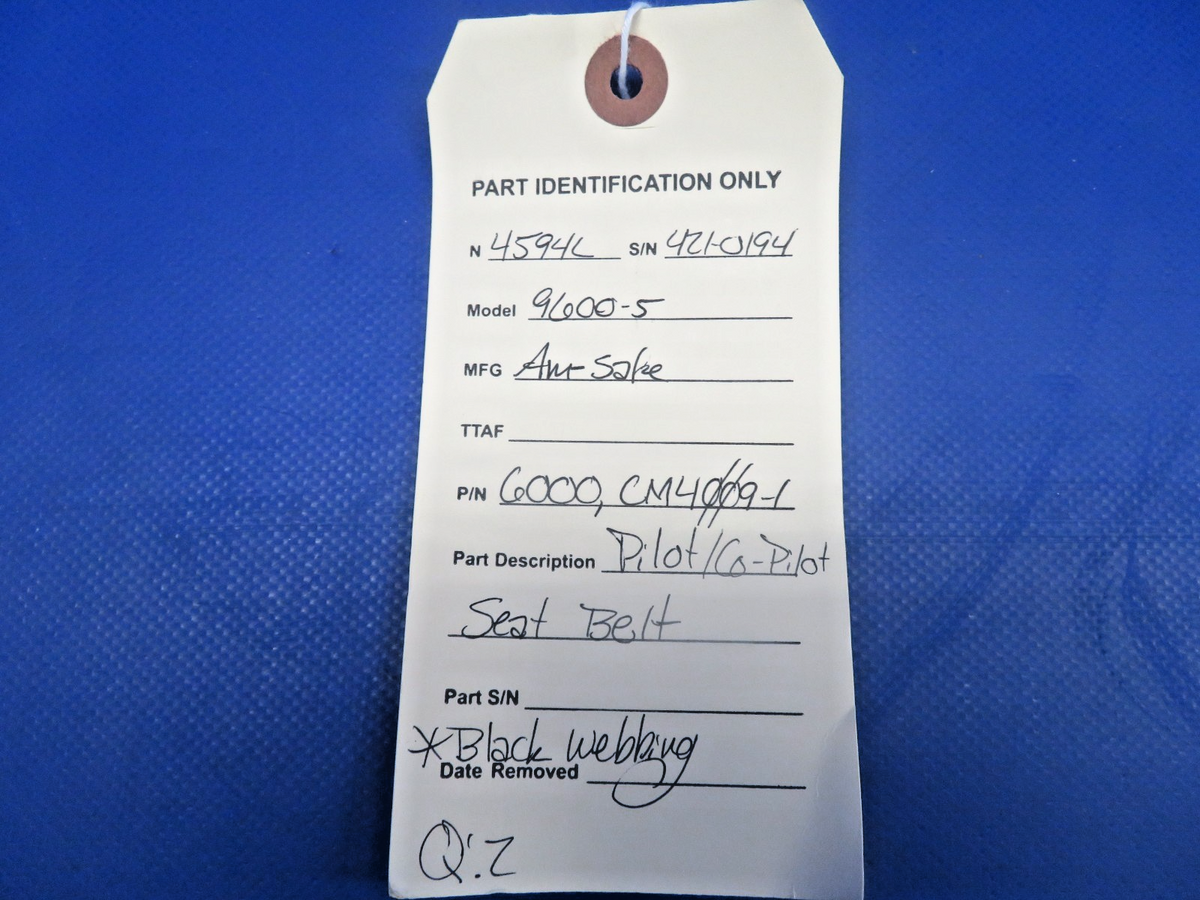 PART IDENTIFICATION ONLY
N 4594L S/N 421-0194
Model 9600-5
MFG Am-Safe
TTAF
P/N 6000, CM4009-1
Part Description Pilot/Co-Pilot
Seat Belt
Part S/N
*Black Webbing
Date Removed
Q:2